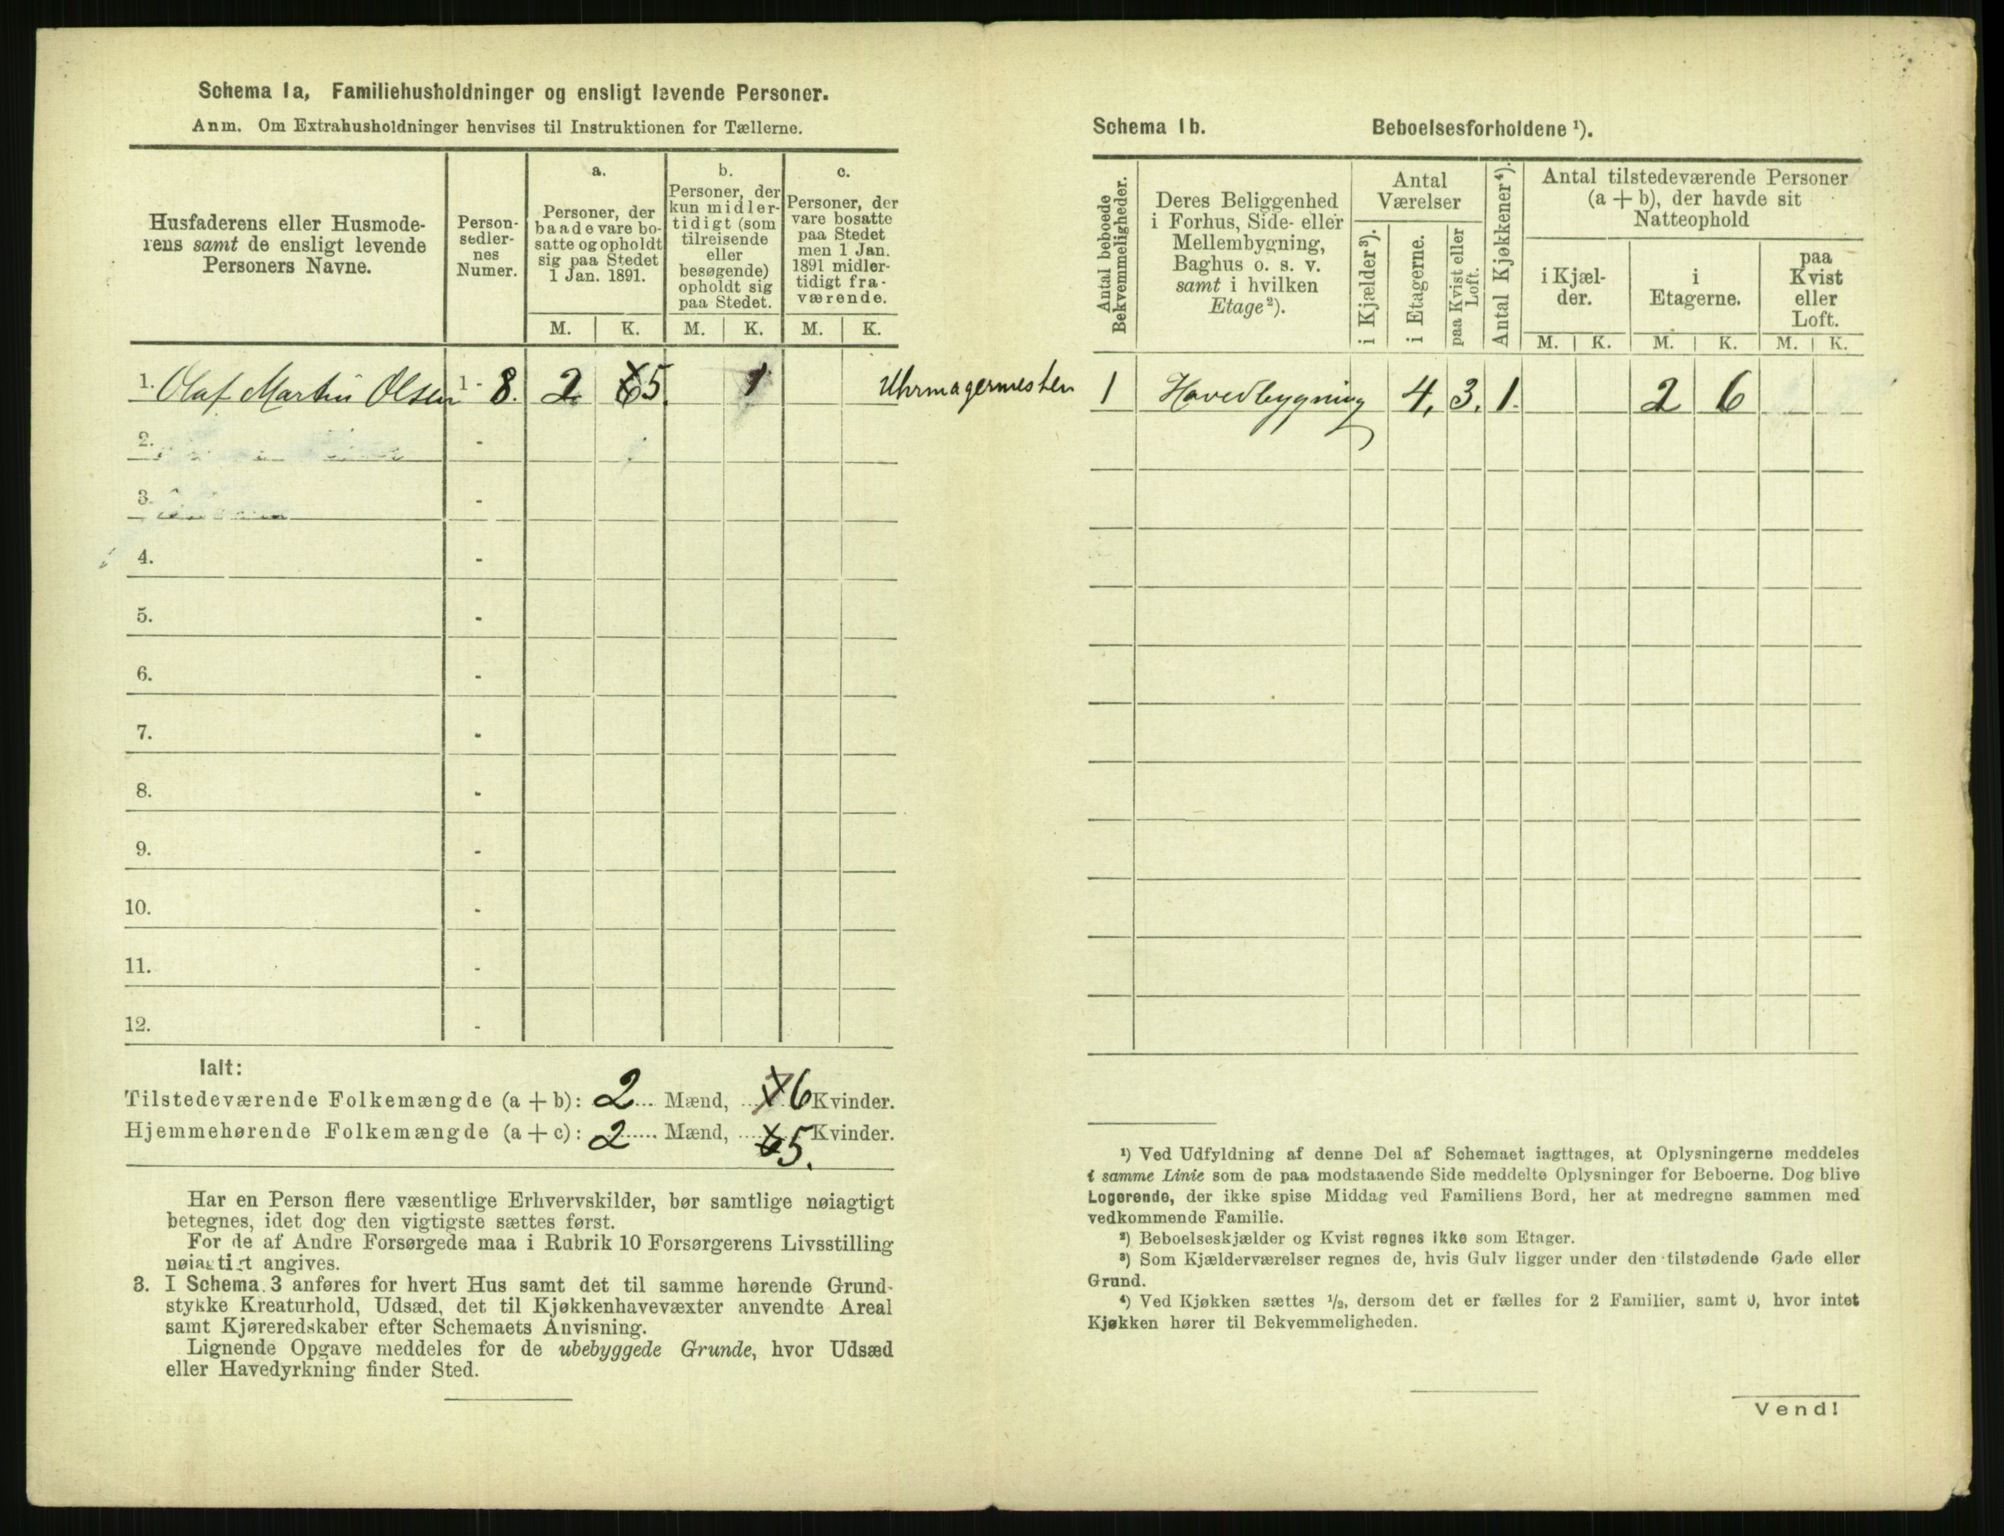 Schema 1a, Familiehusholdninger og ensligt levende Personer.
Anm. Om Extrahusholdninger henvises til Instruktionen for Tællerne.
Husfaderens eller Husmode-
rens samt de ensligt levende
Personers Navne.
Person-
sedler-
nes
Numer.
a.
Personer, der
baade vare bo-
satte og opholdt
sig paa Stedet
1 Jan. 1891.
b.
Personer, der
kun midler-
tidigt (som
tilreisende
eller
besøgende)
opholdt sig
paa Stedet.
c.
Personer, der
vare bosatte
paa Stedet
men 1 Jan.
1891 midler-
tidigt fra-
værende.
M. K. M. K. M. K.
1. Olaf Martin Olsen 1 - 8. 2 6 5. 1 Uhrmagermester
2. -
3. -
4. -
5. -
6. -
7. -
8. -
9. -
10. -
11. -
12. -
Ialt:
Tilstedeværende Folkemængde (a + b): 2 Mænd, 7 6 Kvinder.
Hjemmehørende Folkemængde (a + c): 2 Mænd, 6 5. Kvinder.
Har en Person flere væsentlige Erhvervskilder, bør samtlige nøiagtigt
betegnes, idet dog den vigtigste sættes først.
For de af Andre Forsørgede maa i Rubrik 10 Forsørgerens Livsstilling
nøiagtigt angives.
3. I Schema 3 anføres for hvert Hus samt det til samme hørende Grund-
stykke Kreaturhold, Udsæd, det til Kjøkkenhavevæxter anvendte Areal
samt Kjøreredskaber efter Schemaets Anvisning.
Lignende Opgave meddeles for de ubebyggede Grunde, hvor Udsæd
eller Havedyrkning finder Sted.
Schema 1b. Beboelsesforholdene ¹).
Antal beboede
Bekvemmeligheder.
Deres Beliggenhed
i Forhus, Side- eller
Mellembygning,
Baghus o. s. v.
samt i hvilken
Etage²).
Antal
Værelser
i Kjælder³).
i Etagerne.
paa Kvist eller
Loft.
Antal Kjøkkener⁴).
Antal tilstedeværende Personer
(a + b), der havde sit
Natteophold
i Kjæl-
der.
i
Etagerne.
paa
Kvist
eller
Loft.
M. K. M. K. M. K.
1 Hovedbygning 4. 3. 1. 2 6
¹) Ved Udfyldning af denne Del af Schemaet iagttages, at Oplysningerne meddeles
i samme Linie som de paa modstaaende Side meddelte Oplysninger for Beboerne. Dog blive
Logerende, der ikke spise Middag ved Familiens Bord, her at medregne sammen med
vedkommende Familie.
²) Beboelseskjælder og Kvist regnes ikke som Etager.
³) Som Kjælderværelser regnes de, hvis Gulv ligger under den tilstødende Gade eller
Grund.
⁴) Ved Kjøkken sættes ½, dersom det er fælles for 2 Familier, samt 0, hvor intet
Kjøkken hører til Bekvemmeligheden.
Vend!